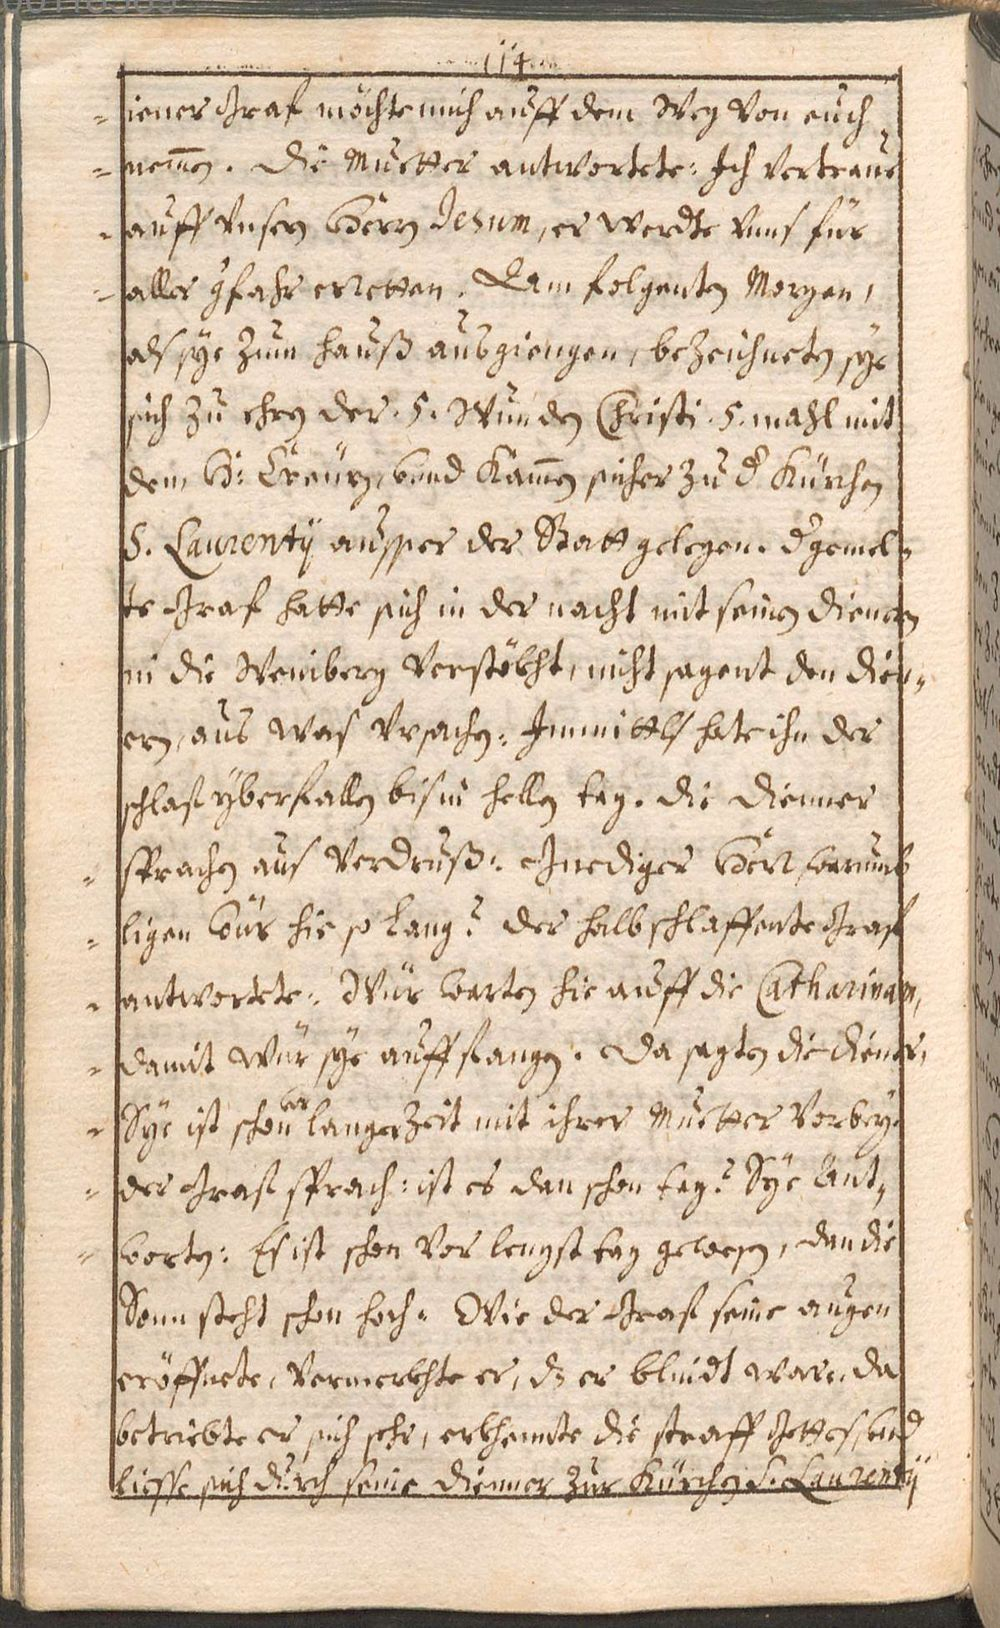 114
= iener Graf möchte mich auff dem Weg von euch
= nem̄en. Die Muetter antwortete: Ich vertraue
= auff vnsern Herrn Jesum, er werdte vnns für
= aller gfahr erretten. Dem folgenten Morgen,
als sÿe zum hauß ausgiengen, bezeichneten sÿe
sich zu ehren der .5. Wunden Christi .5. mahl mit
dem H: Creuz, vnnd kam̄en sicher zu d Kürchen
S. Laurentÿ ausser der Statt gelegen. d gemel=
te Graf hatte sich in der nacht mit seinen dienern
in die Weinberg verstökht, nicht sagent den dien=
ern, aus was vrsachen. Immittls hate ihn der
schlaf ÿberfallen bis in hellen tag. die dienner
= sprachen aus verdruß: Gnediger Herr, warumb
= ligen wür hie so lang? der halb schlaffente Graf
= antwortete: Wür warten hie auff die Catharinam,
= damit wür sÿe auffangen. Da sagten die diener,
= Sÿe ist schon vor langer Zeit mit ihrer Muetter vorbeÿ.
= der Graf sprach: ist es dan schon tag? Sÿe ant=
= worten: Es ist schon vor lengst tag gewesen, dan die
Sonn steht schon hoch. Wie der Graf seine augen
eröffnete, vermerkhte er, dz er blindt ware, da
betriebte er sich sehr, erkhennte die straff Gottes, vnd
liesse sich durch seine dienner zur Kürchen S. Laurentÿ